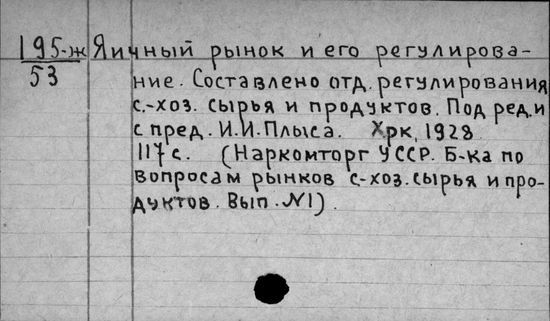 195-ж Яичный рынок и его регулирова-
53
ние. Составлено отд. регулирования
с.-хоз. сырья и продуктов. Под ред. и
с пред. И.И. Плыса. Хрк, 1928
117 с. (Наркомторг УССР. Б-ка по
вопросам рынков с-хоз. сырья и про-
дуктов. Вып. №1).